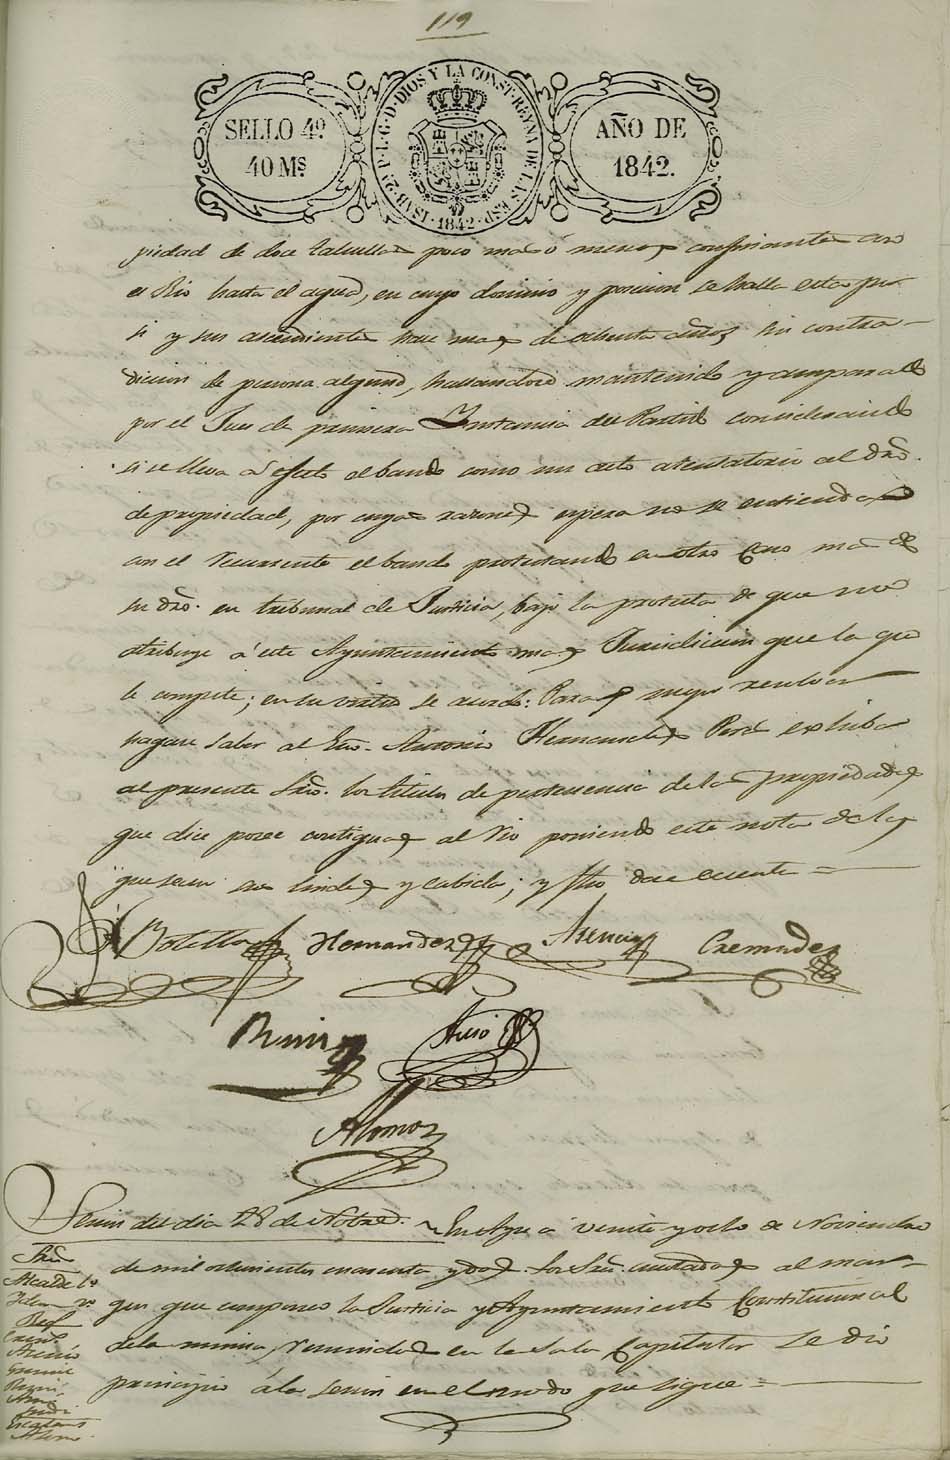 119
SELLO 4º
40 Ms
ISAB. 2ª P. L. G. D. DIOS Y LA CONST. REYNA DE LAS ESP. 1842
AÑO DE
1842.
piedad de doce tahullas poco mas ó menos confinantes con
el Rio hasta el agua, en cuyo dominio y posecion se halla esta por
si y sus ascendientes hace mas de ochenta años sin contra-
dicion de persona alguna, hallandose mantenido y amparado
por el Jues de primera Instancia del Partido considerando
si se lleva á efecto el bando como un acto atentatorio al dro.
de propiedad, por cuyas razones espera no se entienda
con el recurrente el bando protestando en otro caso
su dro. en tribunal de Justicia, bajo la protesta de que no
atribuye á este Ayuntamiento mas Jurisdicion que la que
le compete; en su vista se acordó: Para mejor resolver
hagase saber al Antonio Hernandez Perez exhiba
al presente Srio. los titulos de pertenencia de las propiedades
que dice posee contiguas al Rio poniendo este nota de las
que sean sus lindes y cabida; y fho dar cuenta =
Botella Hernandez Asencio Cremades
Ruiz
Alonso
Sesion del dia 28 de Nobre. En Aspe á veinte y ocho de Noviembre
Sres
Alcalde 1º
Idem 2º
Asencio
Alonso
de mil ochocientos cuarenta y dos. los Sres. anotados al mar-
gen que componen la Justicia y Ayuntamiento Constitucional
de la misma, reunidos en la Sala Capitular se dio
principio á la sesion en el modo que sigue =